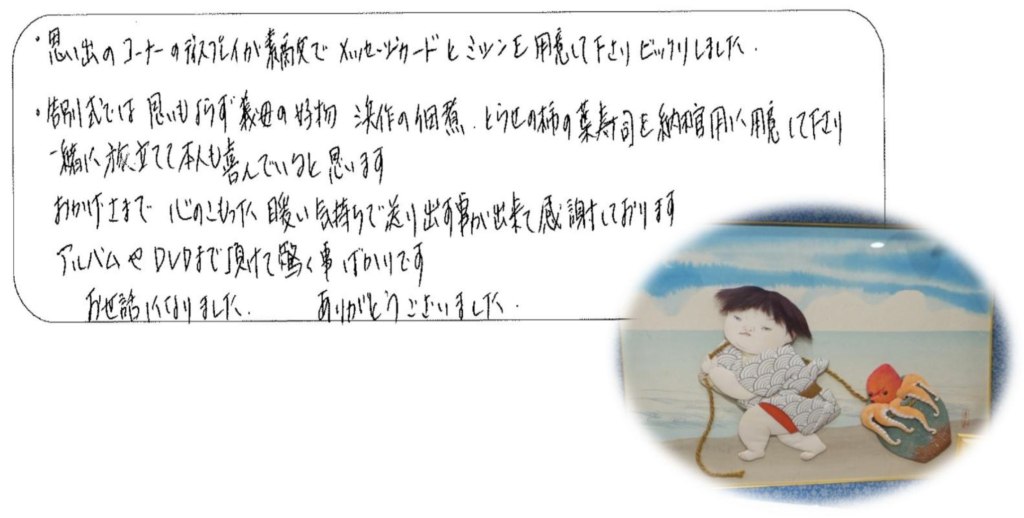 ・思い出のコーナーのディスプレイが素敵でメッセージカードとミシンを用意して下さりビックリしました.
・告別式では思いもよらず義母の好物 浜作の佃煮、とらせの柿の葉寿司を納棺用に用意して下さり
一緒に旅立てて本人も喜んでいると思います
おかげさまで心のこもった暖い気持ちで送り出す事が出来て感謝しております
アルバムやDVDまで頂けて驚く事ばかりです
お世話になりました. ありがとうございました.